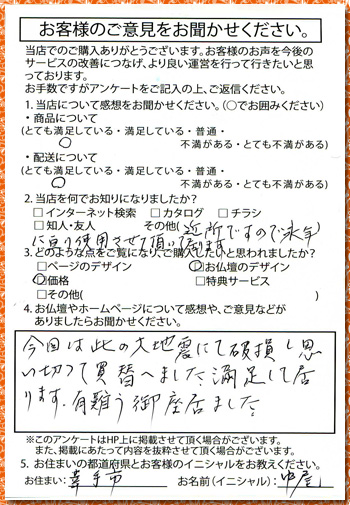 お客様のご意見をお聞かせください。
当店でのご購入ありがとうございます。お客様のお声を今後の
サービスの改善につなげ、より良い運営を行って行きたいと思
っております。
お手数ですがアンケートをご記入の上、ご返信ください。
1. 当店について感想をお聞かせください。(○でお囲みください)
・商品について
(とても満足している・満足している・普通・
不満がある・とても不満がある)
・配送について
(とても満足している・満足している・普通・
不満がある・とても不満がある)
2. 当店を何でお知りになりましたか?
□インターネット検索 □カタログ □チラシ
□知人・友人 その他(近所ですので永年
に亘り使用させて頂いております)
3. どのような点をご覧になり、ご購入したいと思われましたか?
□ページのデザイン □お仏壇のデザイン
□価格 □特典サービス
□その他( )
4. お仏壇やホームページについて感想や、ご意見などが
ありましたらお聞かせください。
今回は此の大地震にて破損し思
い切って買替へました、満足して居
ります。有難う御座居ました。
※このアンケートはHP上に掲載させて頂く場合がございます。
また、掲載にあたって内容を抜粋させて頂く場合がございます。
5. お住まいの都道府県とお客様のイニシャルをお教えください。
お住まい: 幸手市 お名前(イニシャル):